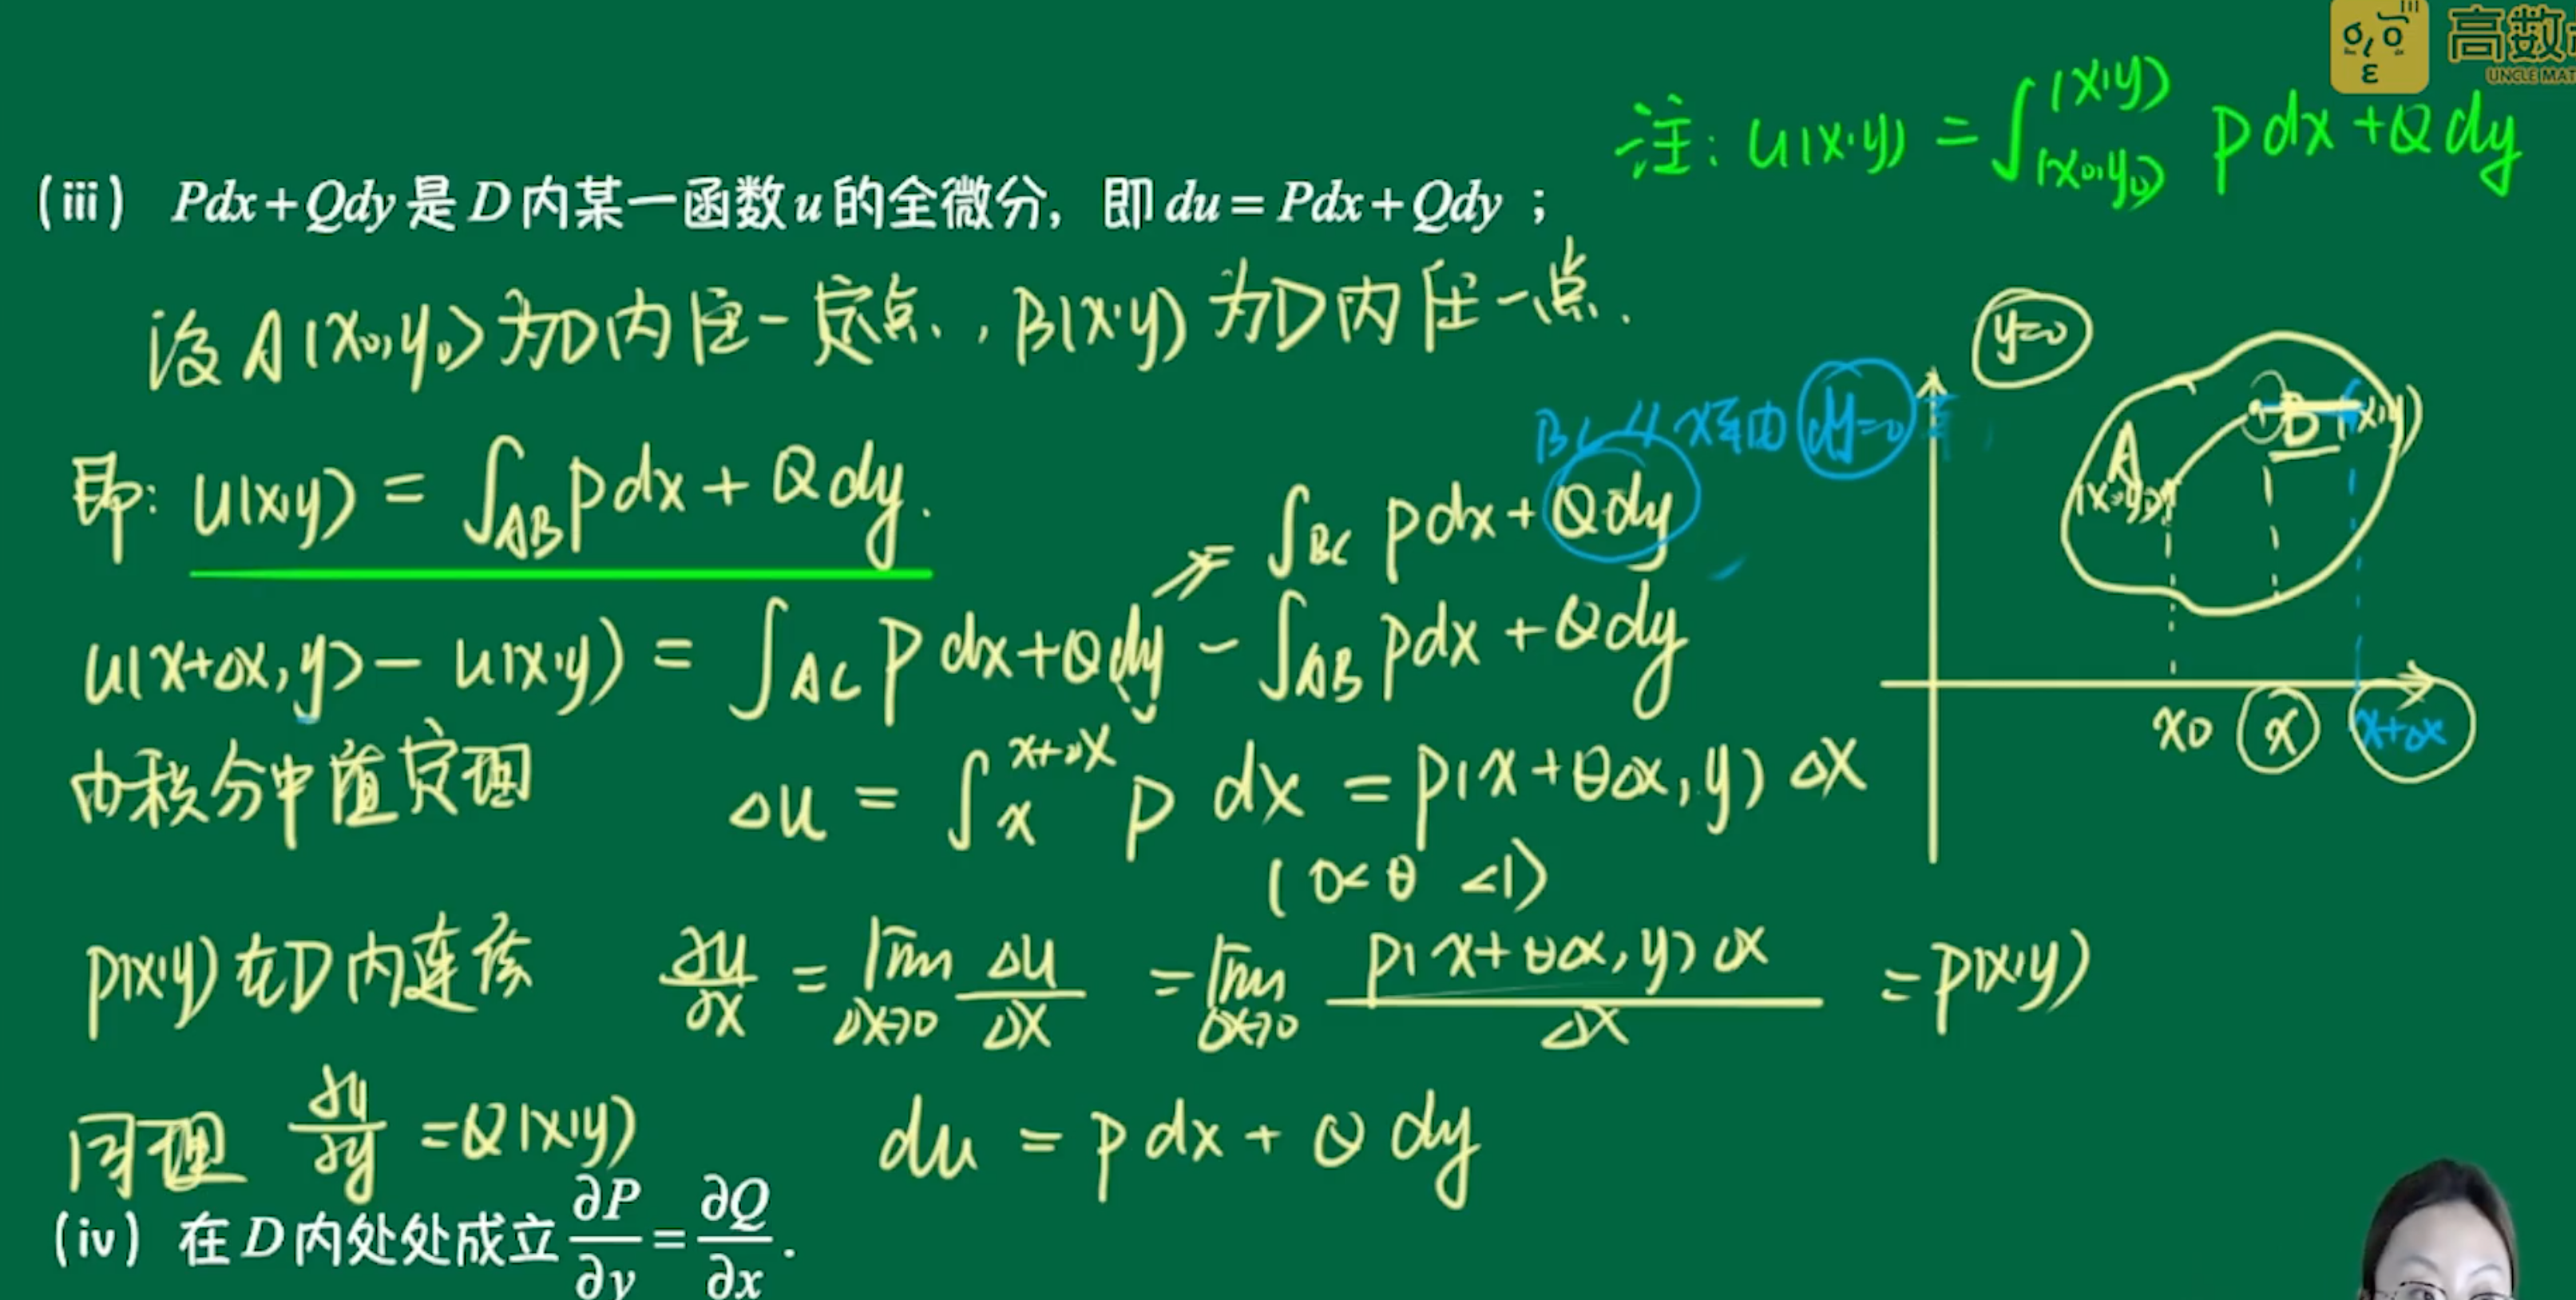 高数
UNCLE MAT
注: u(x,y) = ∫_{(x₀,y₀)}^{(x,y)} Pdx+Qdy
(iii) Pdx+Qdy是D内某一函数u的全微分, 即du=Pdx+Qdy ;
设A(x₀,y₀)为D内任一定点, B(x,y)为D内任一点.
y=0
BC // x轴 dy=0
即: u(x,y) = ∫_{AB} Pdx+Qdy.
= ∫_{BC} Pdx+Qdy
u(x+Δx,y) - u(x,y) = ∫_{AC} Pdx+Qdy - ∫_{AB} Pdx+Qdy
A
(x₀,y₀)
B (x,y)
x₀ x x+Δx
由积分中值定理 Δu = ∫_{x}^{x+Δx} P dx = P(x+θΔx,y)Δx
(0<θ<1)
P(x,y)在D内连续 ∂u/∂x = lim_{Δx→0} Δu/Δx = lim_{Δx→0} P(x+θΔx,y)Δx/Δx = P(x,y)
同理 ∂u/∂y = Q(x,y) du = Pdx+Qdy
(iv) 在D内处处成立 ∂P/∂y = ∂Q/∂x.